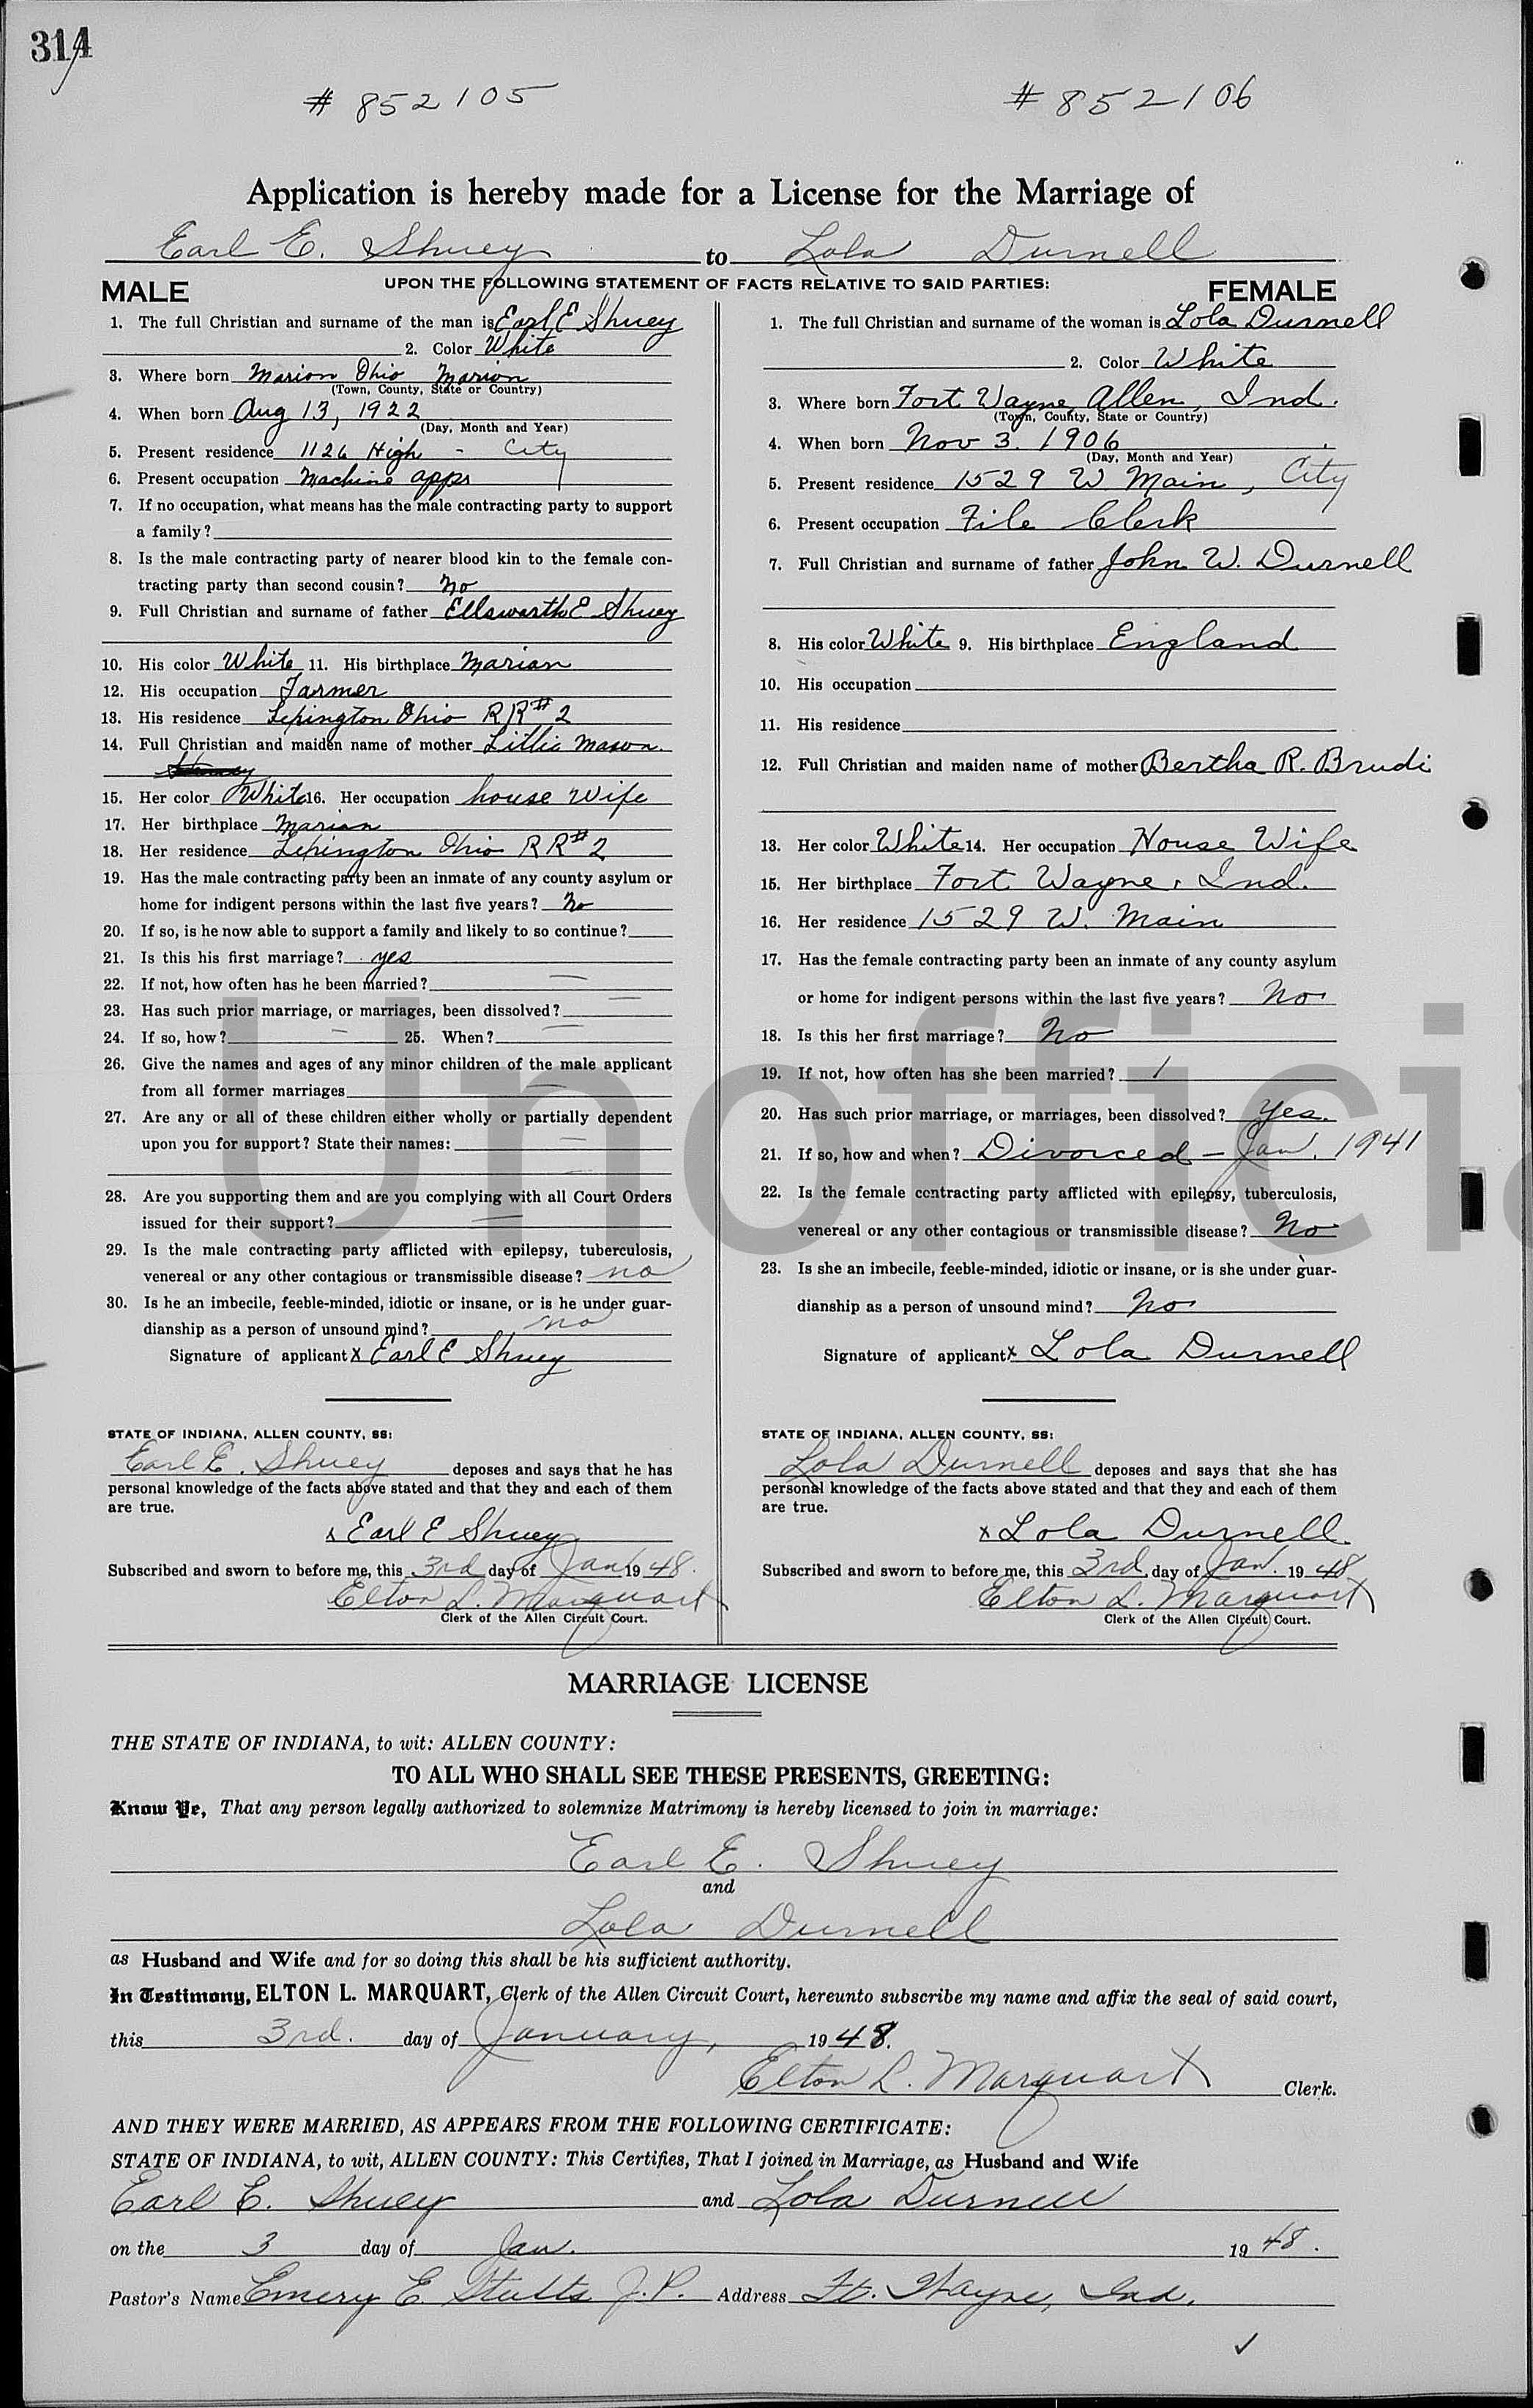 314
# 852105 # 852106
Application is hereby made for a License for the Marriage of
Earl E. Shuey to Lola Durnell
UPON THE FOLLOWING STATEMENT OF FACTS RELATIVE TO SAID PARTIES:
MALE
1. The full Christian and surname of the man is Earl E Shuey
2. Color White
3. Where born Marion Ohio Marion
(Town, County, State or Country)
4. When born Aug 13, 1922
(Day, Month and Year)
5. Present residence 1126 High - City
6. Present occupation Machine apps
7. If no occupation, what means has the male contracting party to support
a family?
8. Is the male contracting party of nearer blood kin to the female con-
tracting party than second cousin? No
9. Full Christian and surname of father Ellsworth E Shuey
10. His color White 11. His birthplace Marian
12. His occupation Farmer
13. His residence Lexington Ohio RR# 2
14. Full Christian and maiden name of mother Lillie Mason
15. Her color White 16. Her occupation house Wife
17. Her birthplace Marian
18. Her residence Lexington Ohio RR# 2
19. Has the male contracting party been an inmate of any county asylum or
home for indigent persons within the last five years? No
20. If so, is he now able to support a family and likely to so continue?
21. Is this his first marriage? yes
22. If not, how often has he been married? —
23. Has such prior marriage, or marriages, been dissolved? —
24. If so, how? — 25. When? —
26. Give the names and ages of any minor children of the male applicant
from all former marriages —
27. Are any or all of these children either wholly or partially dependent
upon you for support? State their names: —
—
28. Are you supporting them and are you complying with all Court Orders
issued for their support? —
29. Is the male contracting party afflicted with epilepsy, tuberculosis,
venereal or any other contagious or transmissible disease? no
30. Is he an imbecile, feeble-minded, idiotic or insane, or is he under guar-
dianship as a person of unsound mind? no
Signature of applicant X Earl E Shuey
STATE OF INDIANA, ALLEN COUNTY, SS:
Earl E. Shuey deposes and says that he has
personal knowledge of the facts above stated and that they and each of them
are true.
x Earl E Shuey
Subscribed and sworn to before me, this 3rd day of Jan 19 48.
Elton L. Marquart
Clerk of the Allen Circuit Court.
FEMALE
1. The full Christian and surname of the woman is Lola Durnell
2. Color White
3. Where born Fort Wayne, Allen, Ind.
(Town, County, State or Country)
4. When born Nov 3. 1906
(Day, Month and Year)
5. Present residence 1529 W Main, City
6. Present occupation File Clerk
7. Full Christian and surname of father John W. Durnell
8. His color White 9. His birthplace England
10. His occupation
11. His residence
12. Full Christian and maiden name of mother Bertha R. Brudi
13. Her color White 14. Her occupation House Wife
15. Her birthplace Fort Wayne, Ind.
16. Her residence 1529 W. Main
17. Has the female contracting party been an inmate of any county asylum
or home for indigent persons within the last five years? No
18. Is this her first marriage? No
19. If not, how often has she been married? 1
20. Has such prior marriage, or marriages, been dissolved? Yes.
21. If so, how and when? Divorced - Jan. 1941
22. Is the female contracting party afflicted with epilepsy, tuberculosis,
venereal or any other contagious or transmissible disease? No
23. Is she an imbecile, feeble-minded, idiotic or insane, or is she under guar-
dianship as a person of unsound mind? No
Signature of applicant x Lola Durnell
STATE OF INDIANA, ALLEN COUNTY, SS:
Lola Durnell deposes and says that she has
personal knowledge of the facts above stated and that they and each of them
are true.
x Lola Durnell
Subscribed and sworn to before me, this 3rd day of Jan. 19 48
Elton L. Marquart
Clerk of the Allen Circuit Court.
MARRIAGE LICENSE
THE STATE OF INDIANA, to wit: ALLEN COUNTY:
TO ALL WHO SHALL SEE THESE PRESENTS, GREETING:
Know Ye, That any person legally authorized to solemnize Matrimony is hereby licensed to join in marriage:
Earl E. Shuey
and
Lola Durnell
as Husband and Wife and for so doing this shall be his sufficient authority.
In Testimony, ELTON L. MARQUART, Clerk of the Allen Circuit Court, hereunto subscribe my name and affix the seal of said court,
this 3rd. day of January, 19 48.
Elton L. Marquart Clerk.
AND THEY WERE MARRIED, AS APPEARS FROM THE FOLLOWING CERTIFICATE:
STATE OF INDIANA, to wit, ALLEN COUNTY: This Certifies, That I joined in Marriage, as Husband and Wife
Earl E. Shuey and Lola Durnell
on the 3 day of Jan. 19 48.
Pastor's Name Emery E. Stults J.P. Address Ft. Wayne, Ind.
Unoffici